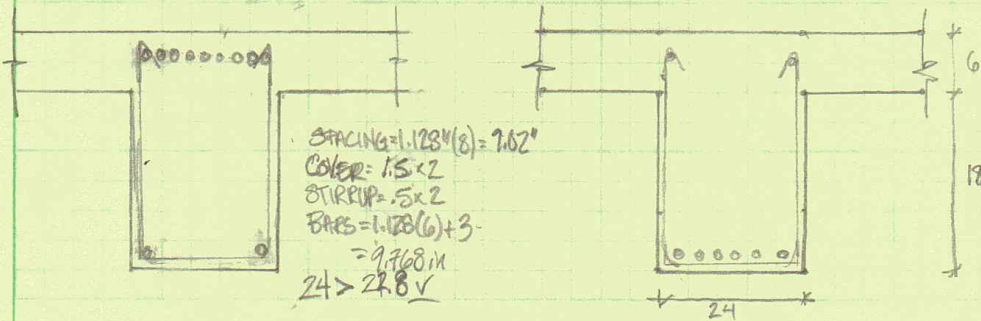 SPACING=1.128"(8)=9.02"
COVER=1.5x2
STIRRUP=.5x2
BARS=1.128(6)+3
=9.768in
24>22.8 √
6
18
24